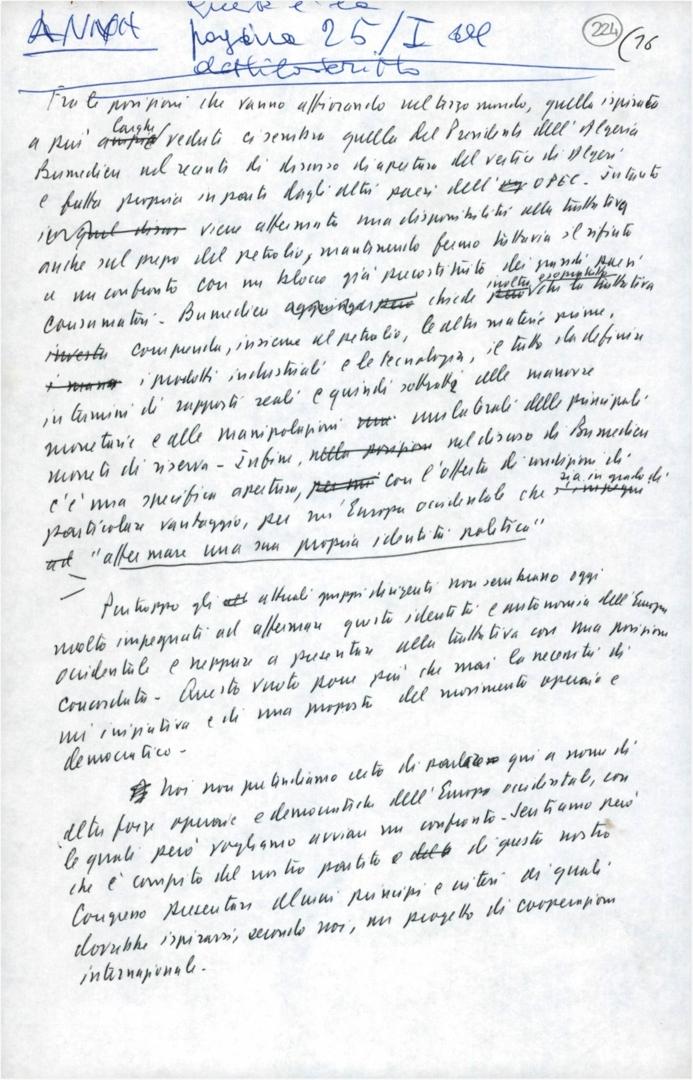 Questa è la
ANNA pagina 25/I del 224 16
dattiloscritto
Fra le posizioni che vanno affiorando nel terzo mondo, quella ispirata
a più ampie larghe vedute ci sembra quella del Presidente dell'Algeria
Bumedien nel recente di discorso di apertura del vertice di Algeri
e fatta propria in parte dagli altri paesi dell' OPEC. Intanto
in quel discor viene affermata una disponibilità alla trattativa
anche sul prezzo del petrolio, mantenendo fermo tuttavia il rifiuto
a un confronto con un blocco già precostituito dei grandi paesi
consumatori. Bumedien aggiunge però chiede però inoltre esplicitamente che la trattativa
investa comprenda, insieme al petrolio, le altre materie prime,
i prodotti industriali e le tecnologie, il tutto da definire
in termini di rapporti reali e quindi sottratti alle manovre
monetarie e alle manipolazioni unilaterali delle principali
monete di riserva. Infine, nella posizione nel discorso di Bumedien
c'è una specifica apertura, per un con l'offerta di condizioni di
particolare vantaggio, per un'Europa occidentale che s'impegni sia in grado di
ad "affermare una sua propria identità politica"
Purtroppo gli att attuali gruppi dirigenti non sembrano oggi
molto impegnati ad affermare questa identità e autonomia dell'Europa
occidentale e neppure a presentare alla trattativa con una posizione
concordata. Questo vuoto pone più che mai la necessità di
un'iniziativa e di una proposta del movimento operaio e
democratico.
Noi non pretendiamo certo di parlare qui a nome di
altre forze operaie e democratiche dell'Europa occidentale, con
le quali però vogliamo avviare un confronto. Sentiamo però
che è compito del nostro partito e del di questo nostro
Congresso presentare alcuni principi e criteri di quali
dovrebbe ispirarsi, secondo noi, un progetto di cooperazione
internazionale.